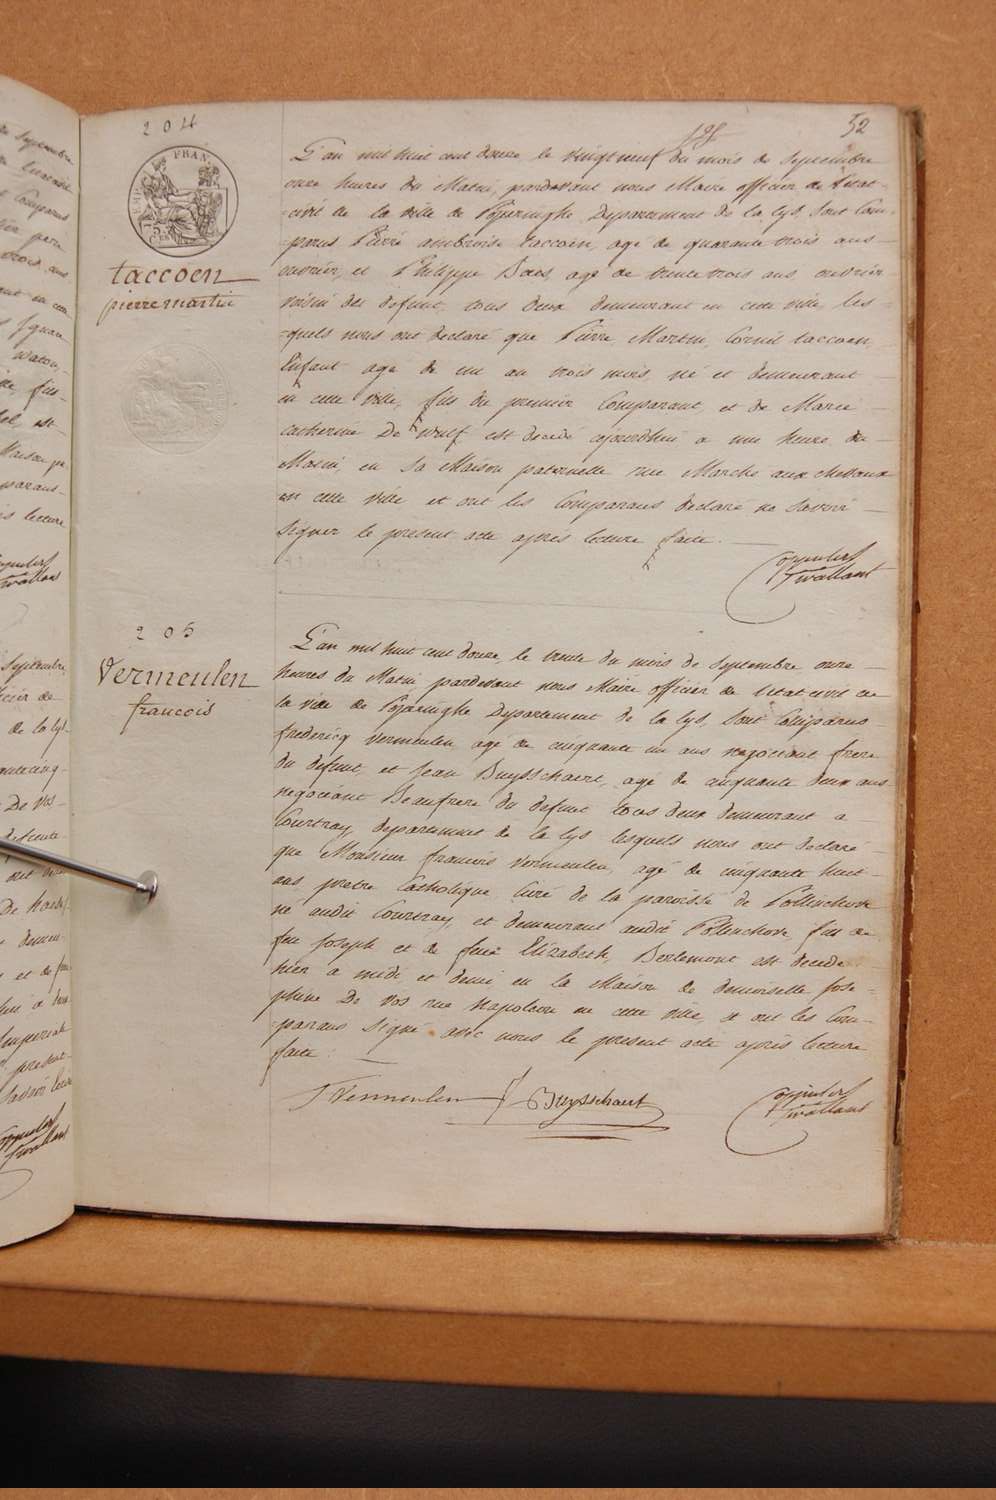 204
52
EMP. FRAN.
75
CES
taccoen
pierre martin
L'an mil huit cent douze le vingt neuf du mois de Septembre
onze heures du Matin, pardevant nous Maire officier de l'etat
civil de la ville de Poperinghe Departement de la lys, sont Com-
parus Pierre ambroise taccoen, agé de quarante trois ans
ouvrier, et Philippe Baes, agé de trente trois ans ouvrier
voisin du defunt, tous deux demeurant en cette ville, les-
-quels nous ont declaré que Pierre Martin, Cornil taccoen,
Enfant agé de un an trois mois, né et demeurant
en cette ville, fils du premier Comparant, et de Marie
catherine De Wulf est decedé ajourdhui a une heure du
Matin, en Sa Maison paternelle rue Marche aux chevaux
en cette ville et ont les Comparans declaré ne Savoir
signer le present acte après lecture faite.
205
Vermeulen
francois
L'an mil huit cent douze, le trente du mois de Septembre onze
heures du Matin pardevant nous Maire officier de l'etat civil de
la ville de Poperinghe Departement de la lys, sont Comparus
fredericq vermeulen, agé de cinquante un ans negociant frere
du defunt, et Jean Buysschaert, agé de cinquante deux ans
negociant Beaufrere du defunt tous deux demeurant a
Courtray, departement de la lys lesquels nous ont declaré
que Monsieur francois vermeulen, agé de cinquante huit
ans pretre Catholique, curé de la paroisse de Pollinchove
né audit Courtray, et demeurant audit Pollinchove, fils de
feu Joseph et de feue Elizabeth, Berlemont est decedé
hier a midi et demi en la Maison de demoiselle Jose-
phine De Vos rue Napoleon en cette ville, et ont les Com-
parans Signé avec nous le present acte après lecture
faite.
f Vermeulen
J Buysschaert